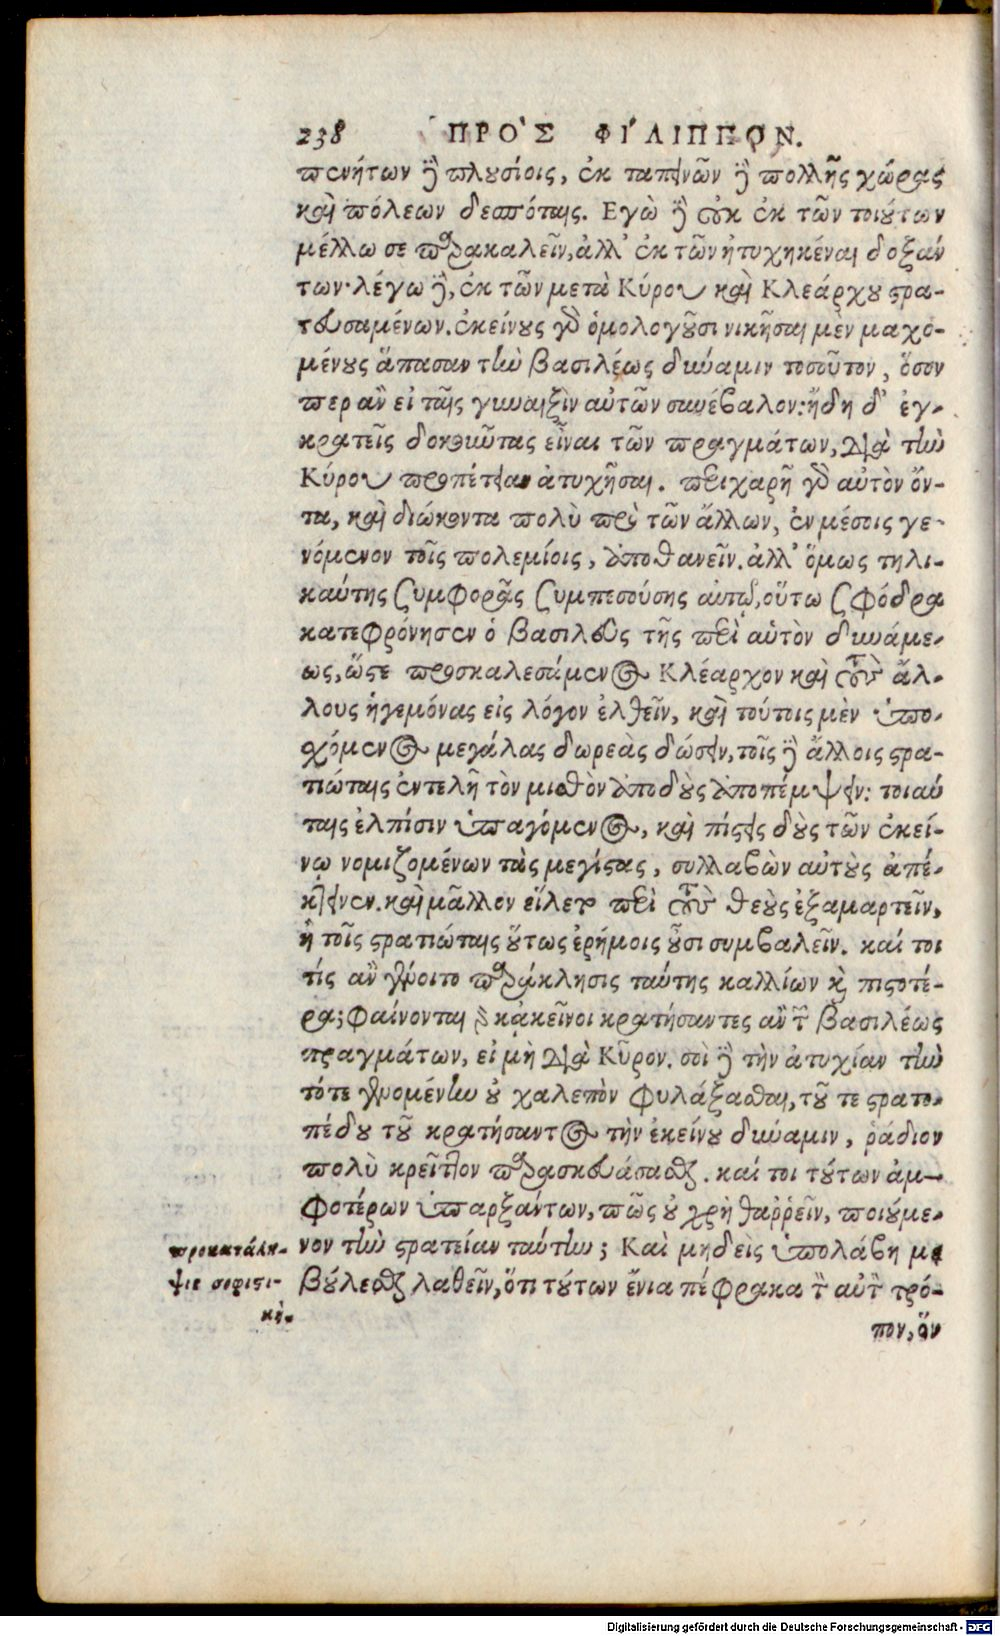 238 ΠΡΟ᾽Σ ΦΙ´ΛΙΠΠΟΝ.
πενήτων δὲ πλουσίοις, ἐκ ταπεινῶν δὲ πολλῆς χώρας
καὶ πόλεων δεσπόταις. Εγὼ δὲ οὐκ ἐκ τῶν τοιούτων
μέλλω σε παρακαλεῖν, ἀλλ᾽ ἐκ τῶν ἠτυχηκέναι δοξάν
των· λέγω δὲ, ἐκ τῶν μετὰ Κύρου καὶ Κλεάρχου στρα-
τευσαμένων. ἐκείνους γὰρ ὁμολογοῦσι νικῆσαι μὲν μαχο-
μένους ἅπασαν τὴν βασιλέως δύναμιν τοσοῦτον, ὅσον
περ ἂν εἰ ταῖς γυναιξὶν αὐτῶν συνέβαλον: ἤδη δ᾽ ἐγ-
κρατεῖς δοκοῦντας εἶναι τῶν πραγμάτων, διὰ τὴν
Κύρου προπέτειαν ἀτυχῆσαι. περιχαρῆ γὰρ αὐτὸν ὄν-
τα, καὶ διώκοντα πολὺ πρὸ τῶν ἄλλων, ἐν μέσοις γε-
νόμενον τοῖς πολεμίοις, ἀποθανεῖν. ἀλλ᾽ ὅμως τηλι-
καύτης συμφορᾶς συμπεσούσης αὐτῷ, οὕτω σφόδρα
κατεφρόνησεν ὁ βασιλεὺς τῆς περὶ αὑτὸν δυνάμε-
ως, ὥστε προσκαλεσάμενος Κλέαρχον καὶ τοὺς ἄλ-
λους ἡγεμόνας εἰς λόγον ἐλθεῖν, καὶ τούτοις μὲν ὑπο-
σχόμενος μεγάλας δωρεὰς δώσειν, τοῖς δὲ ἄλλοις στρα-
τιώταις ἐντελῆ τὸν μισθὸν ἀποδοὺς ἀποπέμψειν: τοιαύ
ταις ἐλπίσιν ὑπαγόμενος, καὶ πίστεις δοὺς τῶν ἐκεί-
νῳ νομιζομένων τὰς μεγίστας, συλλαβὼν αὐτοὺς ἀπέ-
κτεινεν. καὶ μᾶλλον εἵλετο περὶ τοὺς θεοὺς ἐξαμαρτεῖν,
ἢ τοῖς στρατιώταις οὕτως ἐρήμοις οὖσι συμβαλεῖν. καί τοι
τίς ἂν γένοιτο παράκλησις ταύτης καλλίων καὶ πιστοτέ-
ρα; φαίνονται δὲ κἀκεῖνοι κρατήσαντες ἂν τῶν βασιλέως
πραγμάτων, εἰ μὴ διὰ Κῦρον. σοὶ δὲ τὴν ἀτυχίαν τὴν
τότε γενομένην οὐ χαλεπὸν φυλάξασθαι, τοῦ τε στρατο-
πέδου τοῦ κρατήσαντος τὴν ἐκείνου δύναμιν, ῥάδιον
πολὺ κρεῖττον παρασκευάσασθαι. καί τοι τούτων ἀμ-
φοτέρων ὑπαρξάντων, πῶς οὐ χρὴ θαῤῥεῖν, ποιούμε-
νον τὴν στρατείαν ταύτην; Καὶ μηδεὶς ὑπολάβῃ με
βούλεσθαι λαθεῖν, ὅτι τούτων ἔνια πέφρακα τὸν αὐτὸν τρό-
πον, ὃν
προκατάλη-
ψις σοφιστι-
κὴ.
Digitalisierung gefördert durch die Deutsche Forschungsgemeinschaft - DFG